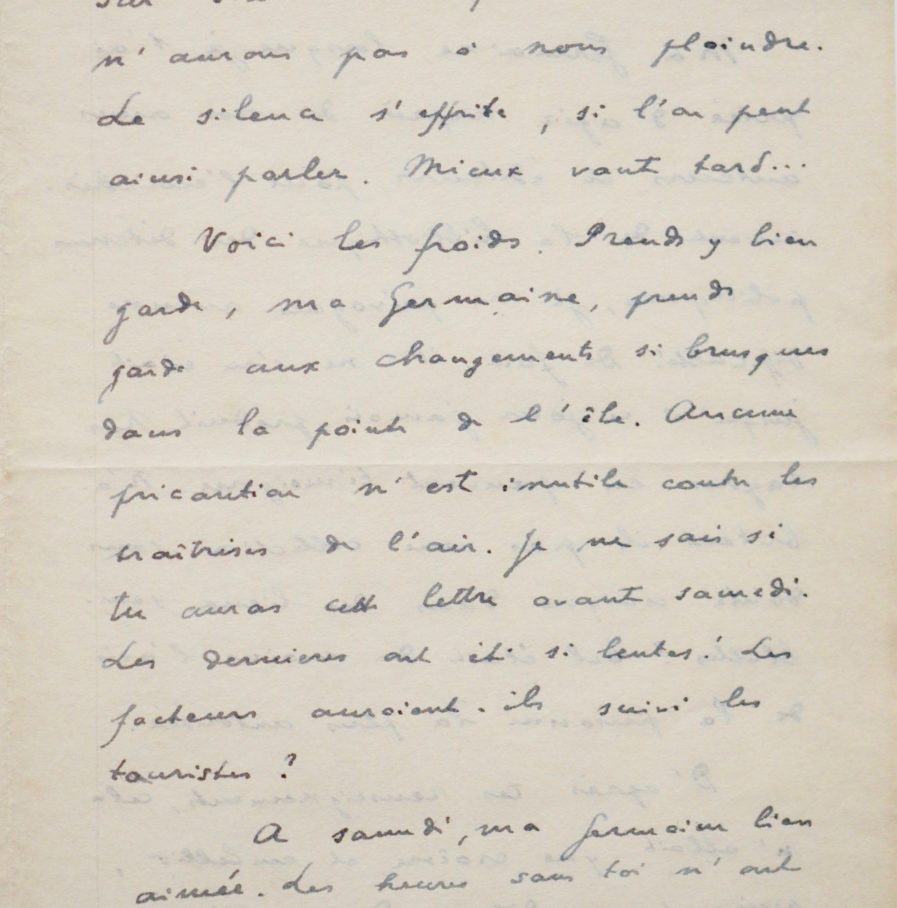 n'aurons pas à nous plaindre.
Le silence s'effrite, si l'on peut
ainsi parler. Mieux vaut tard...
Voici les froids. Prends y bien
garde, ma Germaine, prends
garde aux changements si brusques
dans la pointe de l'île. Aucune
précaution n'est inutile contre les
traîtrises de l'air. Je ne sais si
tu auras cette lettre avant samedi.
Les dernieres ont été si lentes! Les
facteurs auraient-ils suivi les
touristes ?
A samedi, ma Germaine bien
aimée. Les heures sans toi n'ont